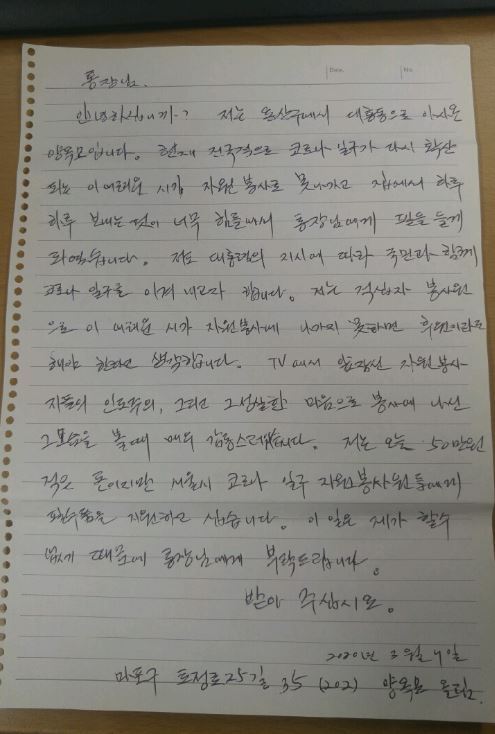 Date.
No.
통장님.
안녕하십니까? 저는 용산구에서 대흥동으로 이사온
양옥모입니다. 현재 전국적으로 코로나 일구가 다시 확산
되는 이 어려운 시기 자원봉사로 못나가고 집에서 하루
하루 보내는 것이 너무 힘들어서 통장님에게 펜을 들게
되였습니다. 저도 대통령의 지시에 따라 국민과 함께
코로나 일구를 이겨 내고자 합니다. 저는 적십자 봉사원
으로 이 어려운 시기 자원봉사에 나가지 못하면 후원이라도
해야 한다고 생각합니다. TV에서 앞장선 자원봉사
자들의 인도주의, 그리고 그 성실한 마음으로 봉사에 나선
그 모습을 볼때 매우 감동스러웠습니다. 저는 오늘 50만원
적은 돈이지만 서울시 코로나 일구 자원봉사원들에게
지원하고 싶습니다. 이 일은 제가 할수
없기 때문에 통장님에게 부탁드립니다.
받아 주십시오.
2020년 3월 4일
마포구 토정로25길 35 (202) 양옥모 올림.